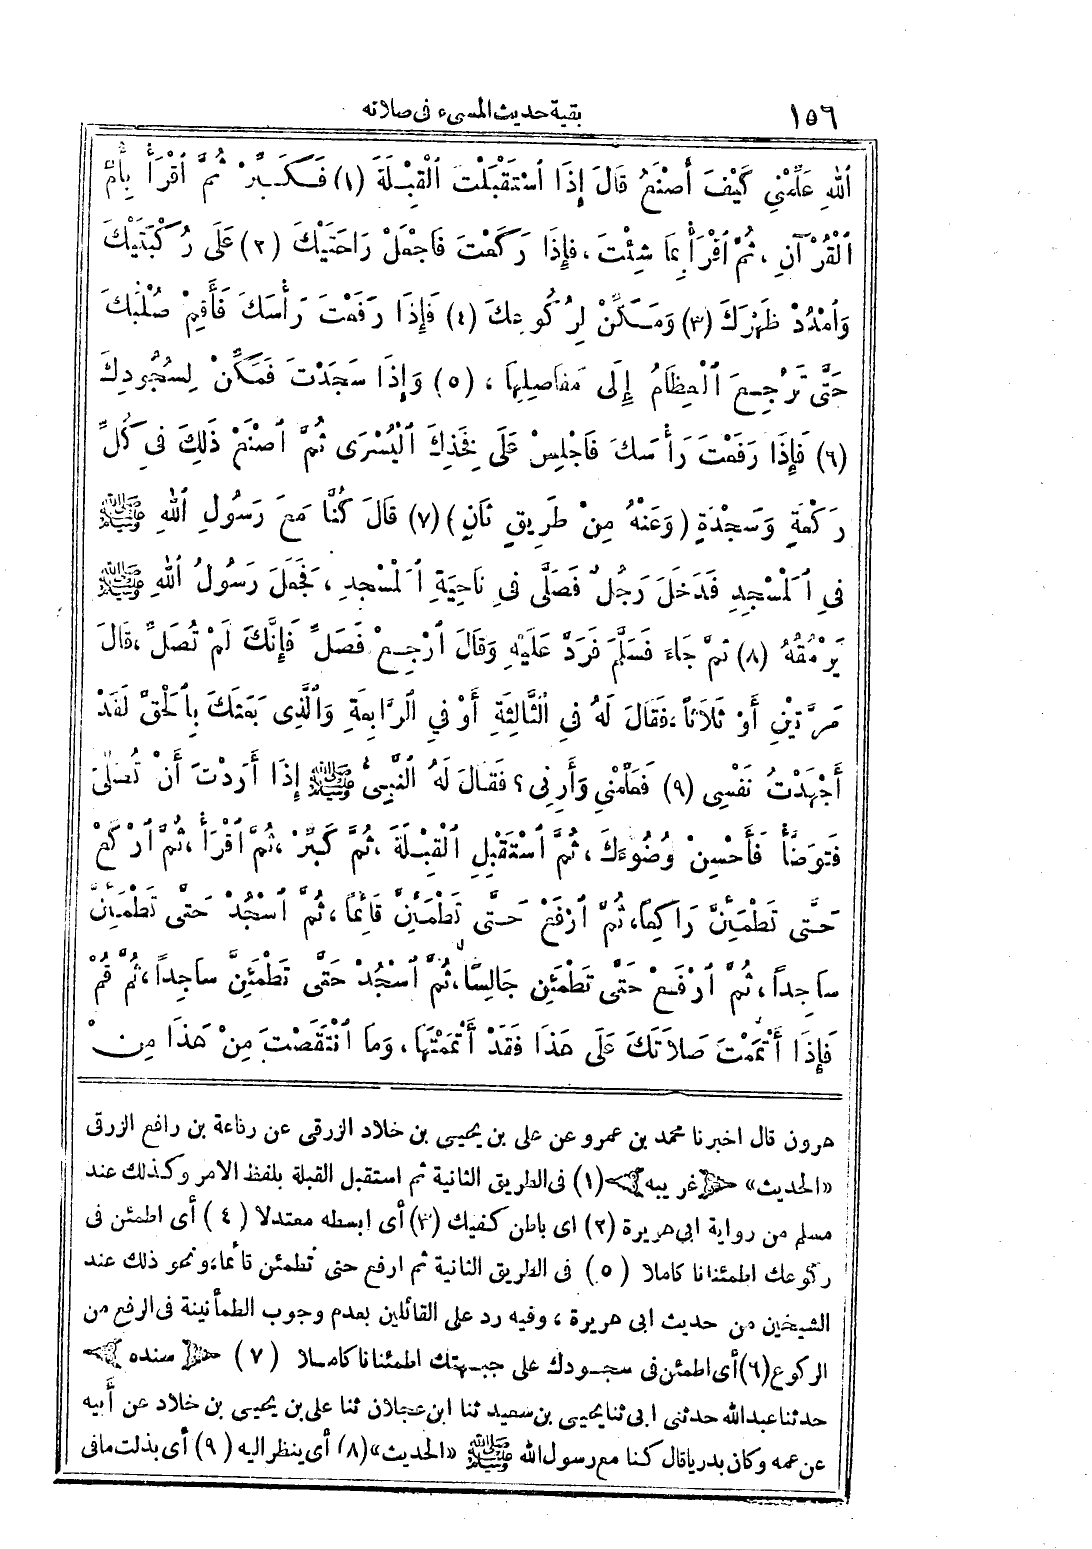 ١٥٦ بقية حديث المسىء فى صلاته
اللهِ عَلِّمْنِي كَيْفَ أَصْنَعُ قَالَ إِذَا اسْتَقْبَلْتَ الْقِبْلَةَ (١) فَكَبِّرْ ثُمَّ اقْرَأْ بِأُمِّ
الْقُرْآنِ ، ثُمَّ اقْرَأْ بِمَا شِئْتَ ، فَإِذَا رَكَعْتَ فَاجْعَلْ رَاحَتَيْكَ (٢) عَلَى رُكْبَتَيْكَ
وَامْدُدْ ظَهْرَكَ (٣) وَمَكِّنْ لِرُكُوعِكَ (٤) فَإِذَا رَفَعْتَ رَأْسَكَ فَأَقِمْ صُلْبَكَ
حَتَّى تَرْجِعَ الْعِظَامُ إِلَى مَفَاصِلِهَا ، (٥) وَإِذَا سَجَدْتَ فَمَكِّنْ لِسُجُودِكَ
(٦) فَإِذَا رَفَعْتَ رَأْسَكَ فَاجْلِسْ عَلَى فَخِذِكَ الْيُسْرَى ثُمَّ اصْنَعْ ذَلِكَ فِى كُلِّ
رَكْعَةٍ وَسَجْدَةٍ (وَعَنْهُ مِنْ طَرِيقٍ ثَانٍ) (٧) قَالَ كُنَّا مَعَ رَسُولِ اللهِ ﷺ
فِى الْمَسْجِدِ فَدَخَلَ رَجُلٌ فَصَلَّى فِى نَاحِيَةِ الْمَسْجِدِ ، فَجَعَلَ رَسُولُ اللهِ ﷺ
يَرْمُقُهُ (٨) ثُمَّ جَاءَ فَسَلَّمَ فَرَدَّ عَلَيْهِ وَقَالَ ارْجِعْ فَصَلِّ فَإِنَّكَ لَمْ تُصَلِّ ، قَالَ
مَرَّتَيْنِ أَوْ ثَلَاثًا ، فَقَالَ لَهُ فِى الثَّالِثَةِ أَوْ فِي الرَّابِعَةِ وَالَّذِى بَعَثَكَ بِالْحَقِّ لَقَدْ
أَجْهَدْتُ نَفْسِى (٩) فَعَلِّمْنِي وَأَرِنِى ؟ فَقَالَ لَهُ النَّبِىُّ ﷺ إِذَا أَرَدْتَ أَنْ تُصَلِّىَ
فَتَوَضَّأْ فَأَحْسِنْ وُضُوءَكَ ، ثُمَّ اسْتَقْبِلِ الْقِبْلَةَ ، ثُمَّ كَبِّرْ ، ثُمَّ اقْرَأْ ، ثُمَّ ارْكَعْ
حَتَّى تَطْمَئِنَّ رَاكِعًا ، ثُمَّ ارْفَعْ حَتَّى تَطْمَئِنَّ قَائِمًا ، ثُمَّ اسْجُدْ حَتَّى تَطْمَئِنَّ
سَاجِداً ، ثُمَّ ارْفَعْ حَتَّى تَطْمَئِنَّ جَالِسًا ، ثُمَّ اسْجُدْ حَتَّى تَطْمَئِنَّ سَاجِداً ، ثُمَّ قُمْ
فَإِذَا أَتْمَمْتَ صَلَاتَكَ عَلَى هَذَا فَقَدْ أَتْمَمْتَهَا ، وَمَا انْتَقَصْتَ مِنْ هَذَا مِنْ
هرون قال اخبرنا محمد بن عمرو عن على بن يحيى بن خلاد الزرقى عن رفاعة بن رافع الزرقى
«الحديث» غريبه (١) فى الطريق الثانية ثم استقبل القبلة بلفظ الامر وكذلك عند
مسلم من رواية ابى هريرة (٢) اى باطن كفيك (٣) أى ابسطه معتدلا (٤) أى اطمئن فى
ركوعك اطمئنانا كاملا (٥) فى الطريق الثانية ثم ارفع حتى تطمئن قائما ، ونحو ذلك عند
الشيخين من حديث ابى هريرة ، وفيه رد على القائلين بعدم وجوب الطمأنينة فى الرفع من
الركوع (٦) أى اطمئن فى سجودك على جبهتك اطمئنانا كاملا (٧) سنده
حدثنا عبد الله حدثنى ابى ثنا يحيى بن سعيد ثنا ابن عجلان ثنا على بن يحيى بن خلاد عن أبيه
عن عمه وكان بدريا قال كنا مع رسول الله ﷺ «الحديث» (٨) أى ينظر اليه (٩) أى بذلت ما فى